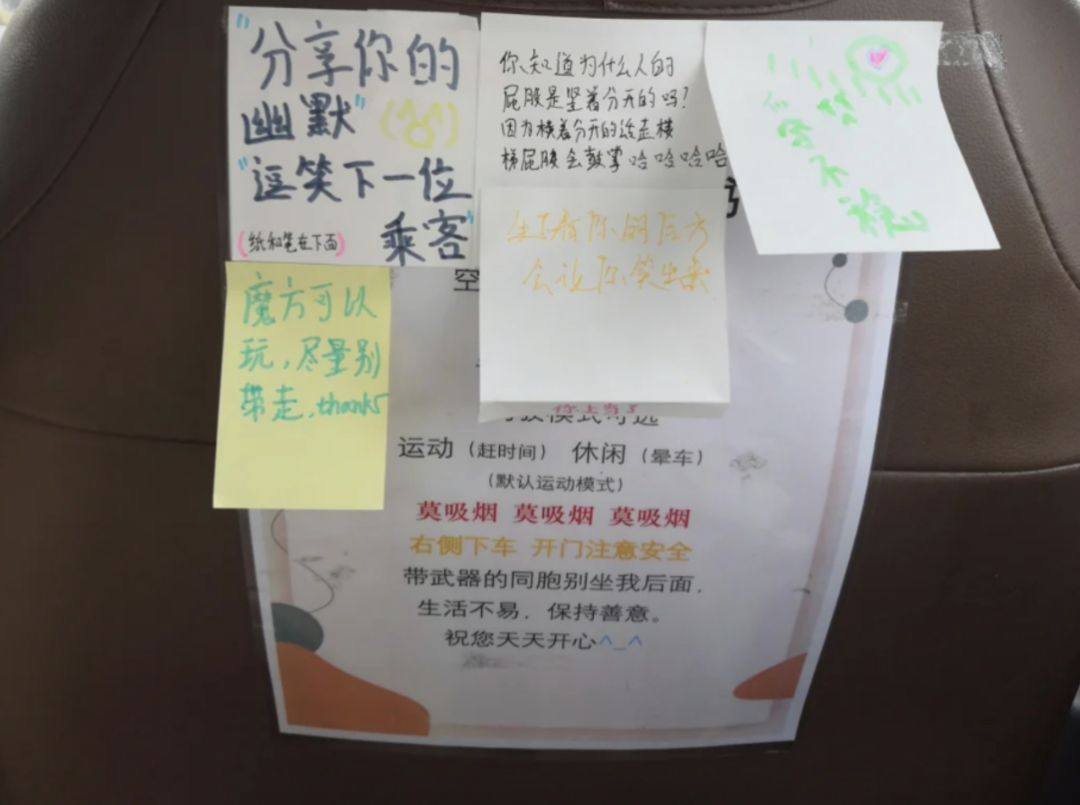 "分享你的
幽默"
"逗笑下一位
乘客"
(纸和笔在下面)
你知道为什么人的
屁股是竖着分开的吗?
因为横着分开的话走楼
梯屁股会鼓掌哈哈哈哈
会让你笑出来
字
不
稳
魔方可以
玩,尽量别
带走.thanks
空
你上当了
模式可选
运动(赶时间) 休闲(晕车)
(默认运动模式)
莫吸烟 莫吸烟 莫吸烟
右侧下车 开门注意安全
带武器的同胞别坐我后面,
生活不易,保持善意。
祝您天天开心^_^